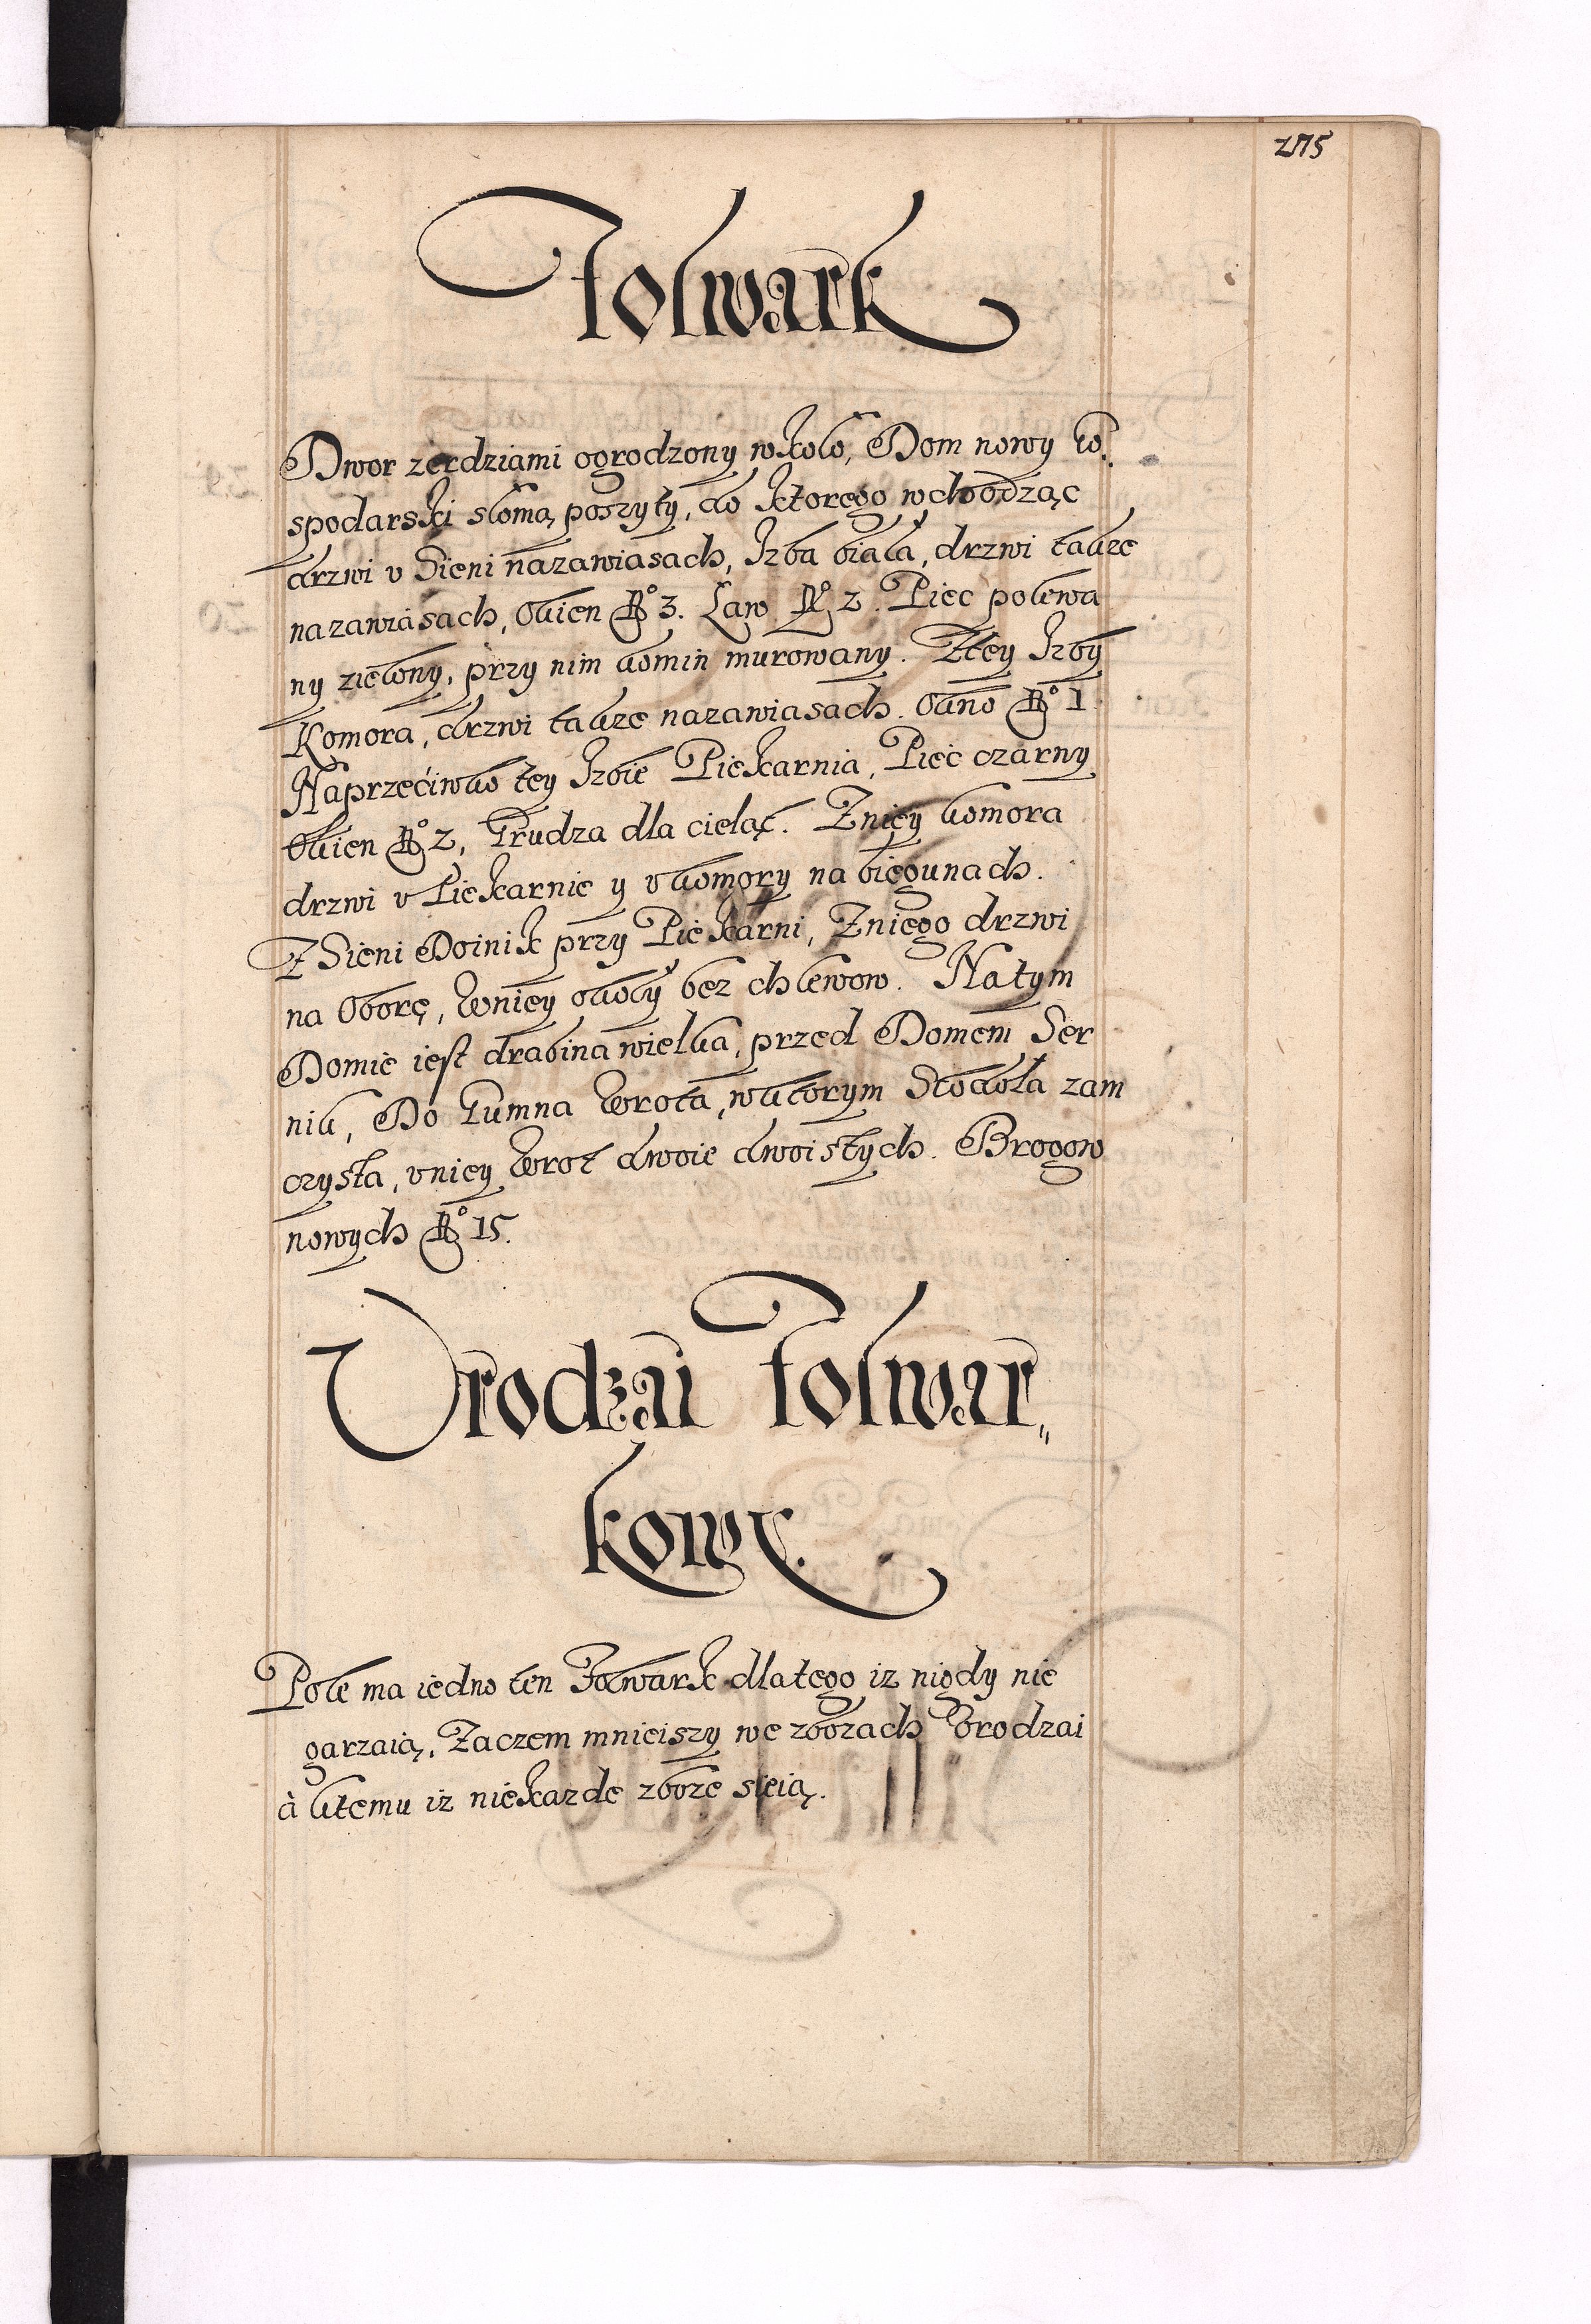 275
Folwark
Dwor zerdziami ogrodzony wkoło, Dom nowy Go„
spodarski słomą poszyty, do ktorego wchodząc
drzwi v Sieni nazawiasach, Izba biała, drzwi także
nazawiasach, Okien No 3. Law No 2. Piec polewa
ny zielony, przy nim komin murowany. Ztey Izby
Komora, drzwi także nazawiasach. Okno No 1.
Naprzeciwko tey Izbie Piekarnia, Piec czarny
Okien No 2, Grudza dla cieląc. Zniey komora
drzwi v Piekarnie y v komory na biegunach.
Z Sieni Doinik przy Piekarni, Zniego drzwi
na Oborę, wniey okoły bez chlewow. Natym
Domie iest drabina wielka, przed Domem Ser
nik, Do Gumna wrota, wktorym Stodoła zam
czysta, vniey wrot dwoie dwoistych. Brogow
nowych No 15.
Vrodzai Folwar„
kowy.
Pole ma iedno ten Folwark dlatego iz nigdy nie
garzaią, Zaczem mnieiszy we zbozach Vrodzai
à ktemu iz niekazde zboze sieią.